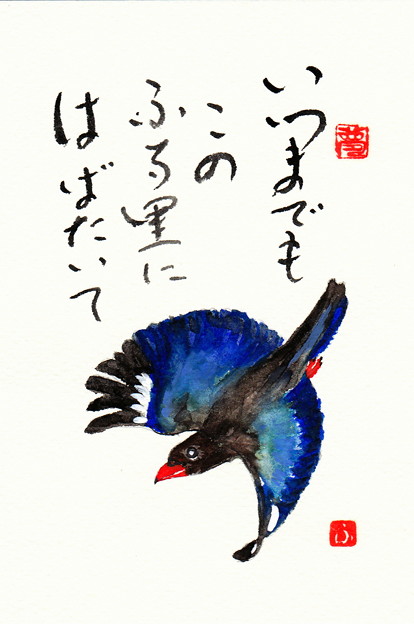 いつまでも
この
ふる里に
はばたいて
夢
ふ